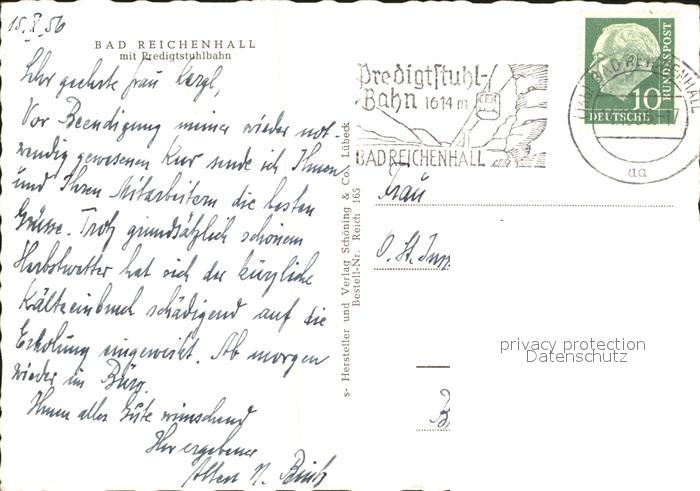 15.X.56
BAD REICHENHALL
mit Predigtstuhlbahn
Sehr geehrte Frau Kargl,
Vor Beendigung meiner wieder not-
wendig gewesenen Kur sende ich Ihnen
und Ihren Mitarbeitern die besten
Grüsse. Trotz grundsätzlich schönem
Herbstwetter hat sich der kürzliche
Kälteeinbruch schädigend auf die
Erholung eingewirkt. Ab morgen
wieder im Bürg.
Ihnen alles Gute wünschend
Ihr ergebener
s- Hersteller und Verlag Schöning & Co., Lübeck
Bestell-Nr. Reich 165
Predigtstuhl-
Bahn 1614 m
BAD REICHENHALL
BAD REICHENHALL
aa
10
DEUTSCHE
BUNDESPOST
Frau
O. St. Insp
B
privacy protection
Datenschutz